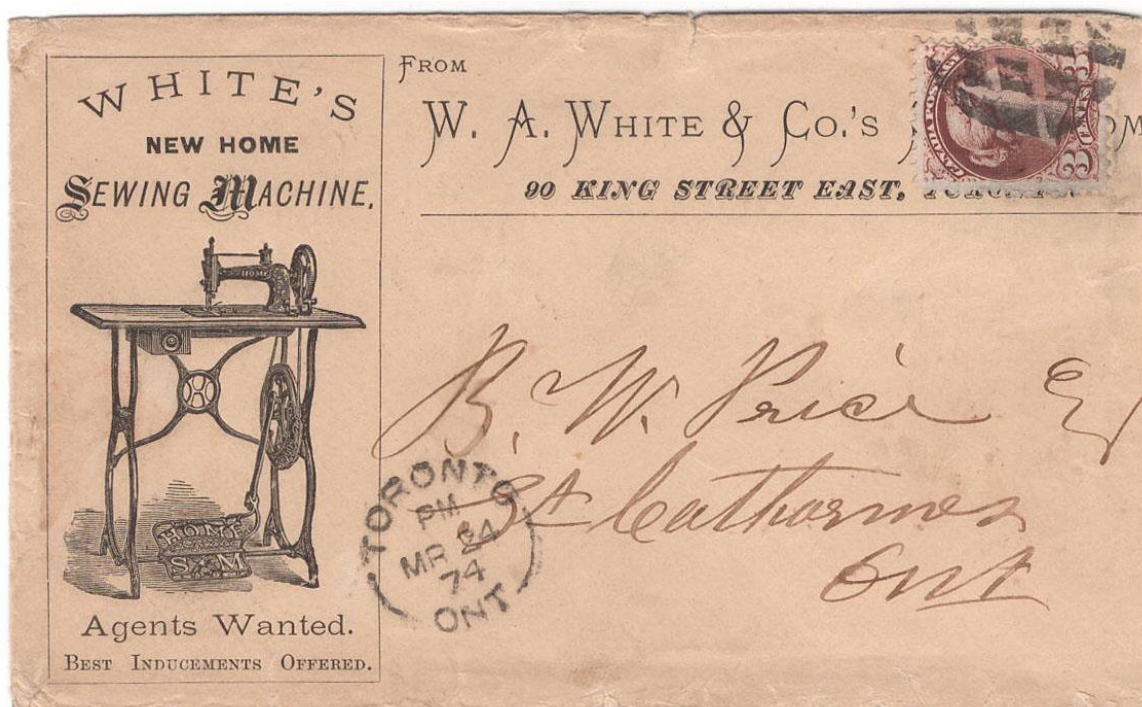 WHITE'S
NEW HOME
SEWING MACHINE,
HOME
HOME
S M
Agents Wanted.
BEST INDUCEMENTS OFFERED.
FROM
W. A. WHITE & CO.'S
90 KING STREET EAST, TORONTO
CANADA POSTAGE
3 CENTS 3
B. W. Price Esq
St Catharines
Ont
TORONTO
PM
MR 24
74
ONT